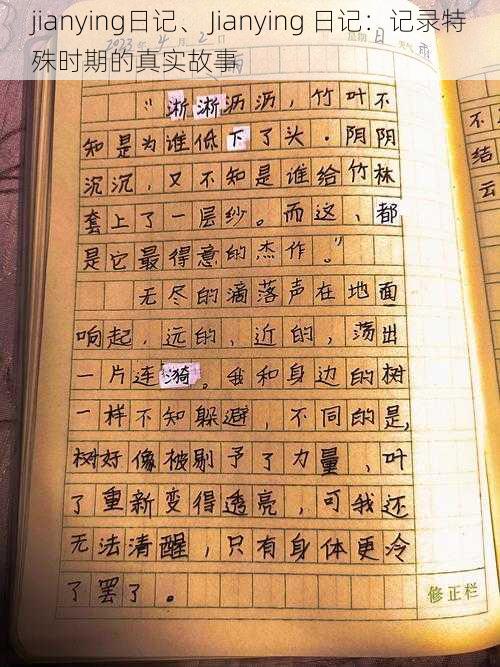 jianying日记、Jianying 日记：记录特
殊时期的真实故事
2023年4月2日 星期日 天气雨
“淅淅沥沥，竹叶不
知是为谁低下了头．阴阴
沉沉，又不知是谁给竹林
套上了一层纱。而这、都
是它最得意的杰作。”
无尽的滴落声在地面
响起，远的，近的，荡出
一片连漪。我和身边的树
一样不知躲避，不同的是，
树好像被剔予了力量，叶
了重新变得透亮，可我还
无法清醒，只有身体更冷
了罢了。
修正栏
不
结
云